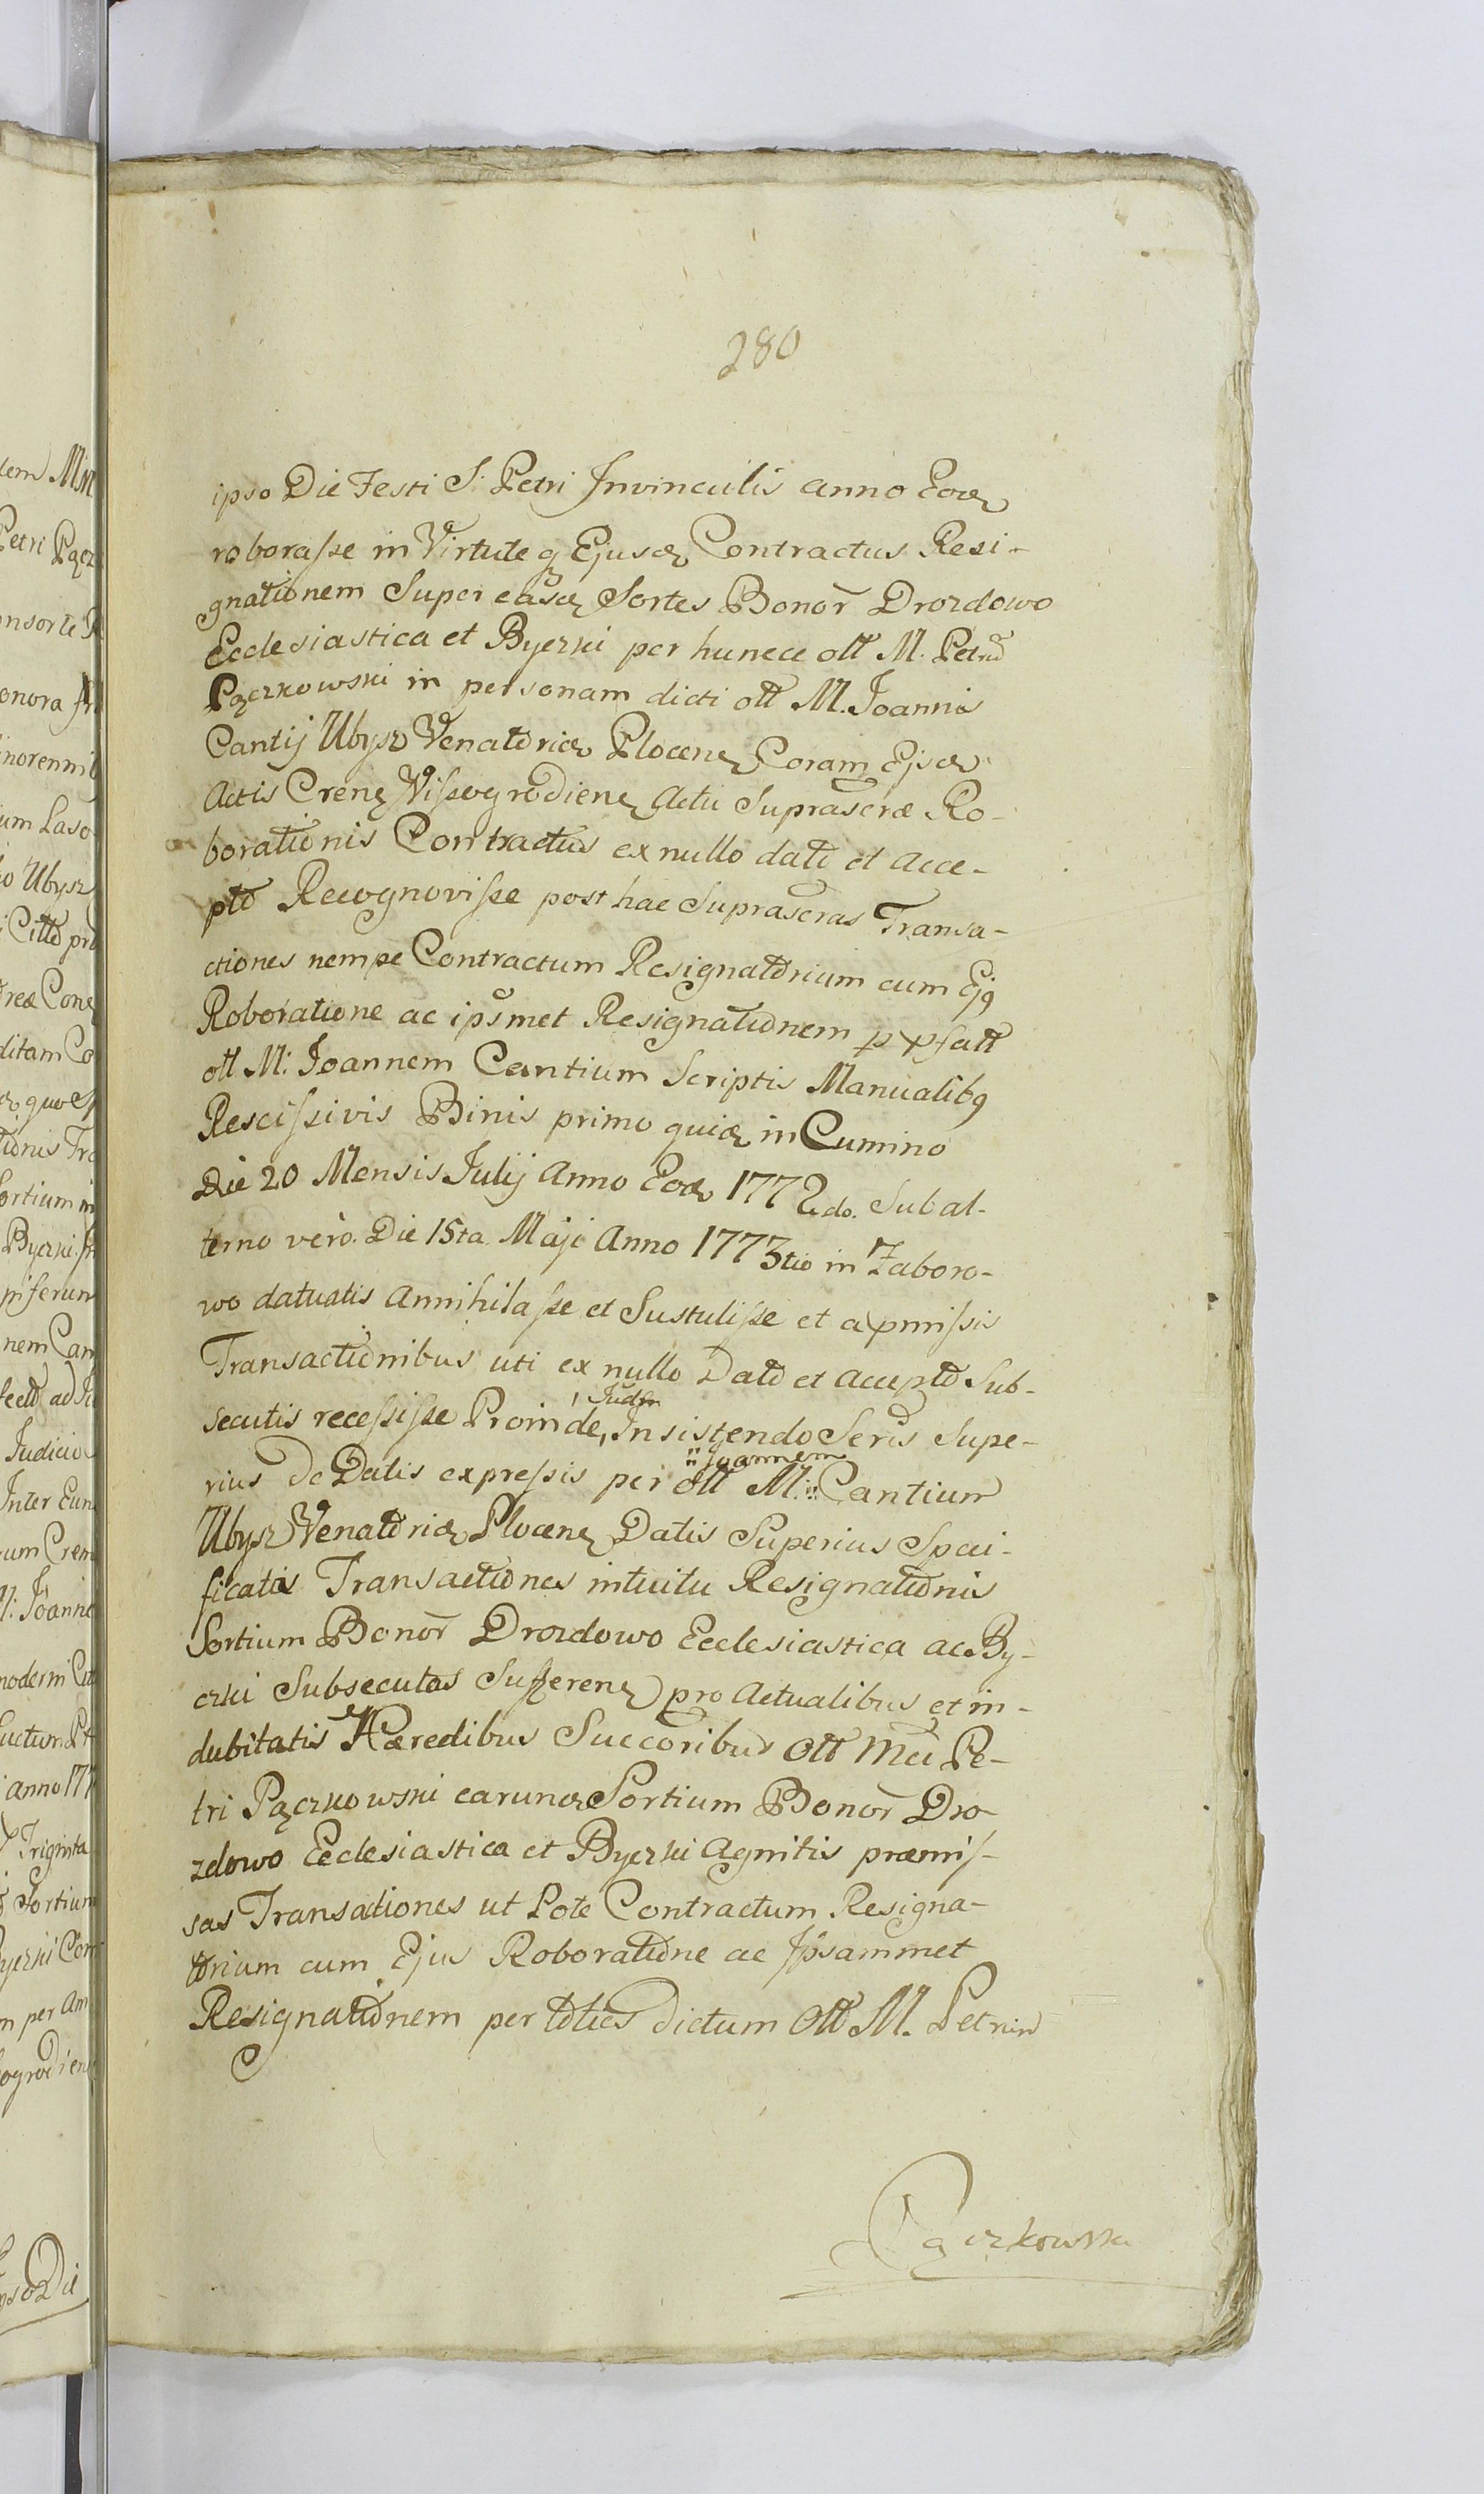 280
ipso Die Festi S: Petri Invinculis anno Eod
roborasse in Virtute q Ejusd Contractus Resi-
gnationem Super easd Sortes Bonor Drozdowo
Ecclesiastica et Byczki per huncce olt M. Petru
Pączkowski in personam dicti olt M. Joannis
Cantij Ubysz Venatorid Plocen Coram Ejsd
Actis Cren Vissogrodien Actu Suprascræ Ro-
borationis Contractus ex nullo dato et acce-
pto Recognovisse post hac Suprascras Transa-
ctiones nempe Contractum Resignatorium cum Ej9
Roboratione ac ipsmet Resignationem p
olt M: Joannem Cantium Scriptis Manualib9
Rescissivis Binis primo quid in Cumino
Die 20 Mensis Julij Anno Eod 1772do. Subal-
terno vero. Die 15ta Maji Anno 1773tio in Zaboro-
wo datuatis Annihilasse et Sustulisse et a pmissis
Transactionibus uti ex nullo Dato et Accepto Sub-
secutis recessisse Proinde, Insistendo Seris Supe-
rius De Datis expressis per olt M: Joannem Cantium
Ubysz Venatorid Plocen Datis Superius Speci-
ficatis Transactiones intuitu Resignationis
Sortium Bonor Drozdowo Ecclesiastica ac By-
czki Subsecutas Sufferen pro Actualibus et in-
dubitatis Hæredibus Succoribus Olt Mci Pe-
tri Pączkowski earund Sortium Bonor Dro-
zdowo Ecclesiastica et Byczki Agnitis præmis-
sas Transactiones ut Pote Contractum Resigna-
torium cum Ejus Roboratione ac Ipsammet
Resignationem per toties dictum Olt M. Petrum
Pączkowski